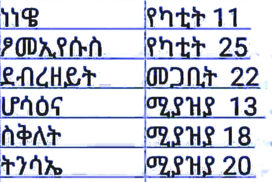 ነነዌ የካቲት 11
ፆመኢየሱስ የካቲት 25
ደብረዘይት መጋቢት 22
ሆሳዕና ሚያዝያ 13
ስቅለት ሚያዝያ 18
ትንሳኤ ሚያዝያ 20